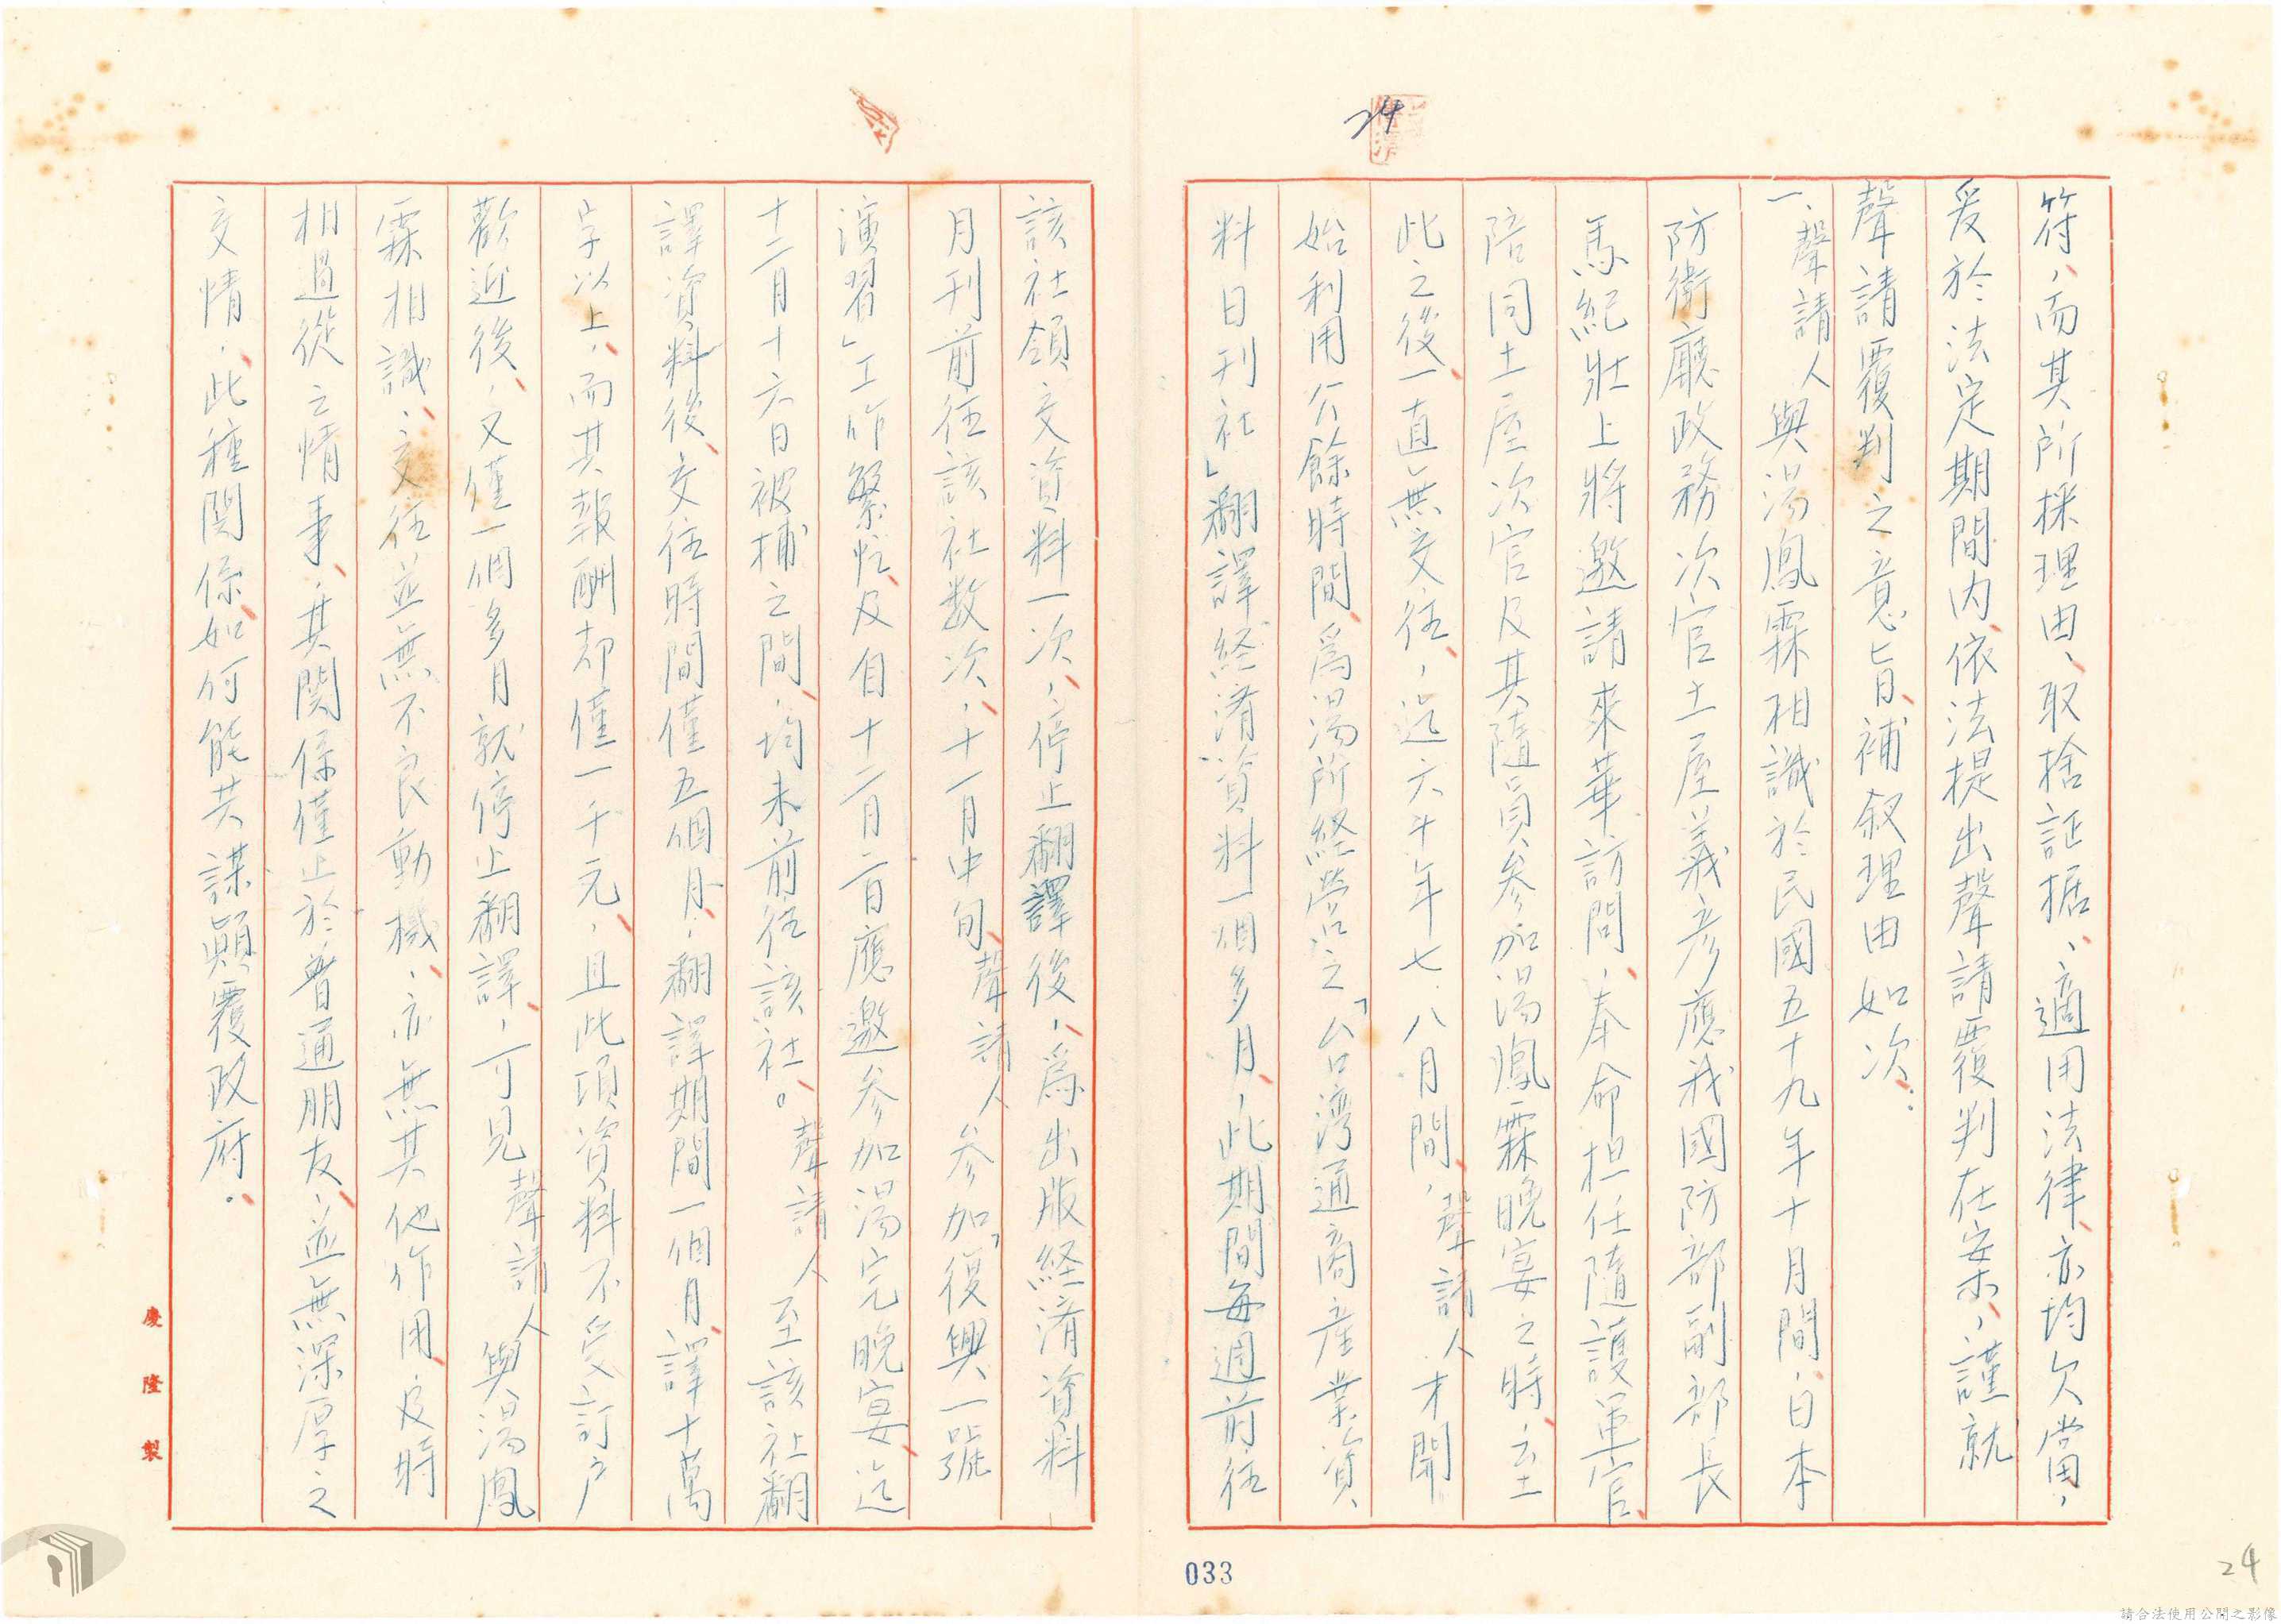 24
符，而其所採理由、取捨証据、適用法律亦均欠當，
爰於法定期間內依法提出聲請覆判在案，謹就
聲請覆判之意旨補叙理由如次：
一、聲請人與湯鳳霖相識於民國五十九年十月間，日本
防衛廳政務次官土屋義彥應我國防部副部長
馬紀壯上將邀請來華訪問，奉命担任隨護軍官
陪同土屋次官及其隨員參加湯鳳霖晚宴之時，至
此之後一直無交往，迄六十年七、八月間，聲請人才開
始利用公餘時間為湯所経营之「台湾通商産業資
料日刊社」翻譯経済資料一個多月，此期間每週前往
該社領交資料一次，停止翻譯後，為出版経済資料
月刊前往該社数次，十一月中旬聲請人參加「復興一號
演習」工作繁忙及自十二月二日應邀參加湯完晚宴迄
十二月十六日被捕之間，均未前往該社。聲請人至該社翻
譯資料後交往時間僅五個月，翻譯期間一個月譯十萬
字以上，而其報酬却僅一千元，且此項資料不受訂户
歡迎後，又僅一個多月就停止翻譯，可見聲請人與湯鳳
霖相識、交往並無不良動機，亦無其他作用及時
相過從之情事，其関係僅止於普通朋友，並無深厚之
交情，此種関係如何能共謀顛覆政府。
慶隆製
033
24
請合法使用公開之影像